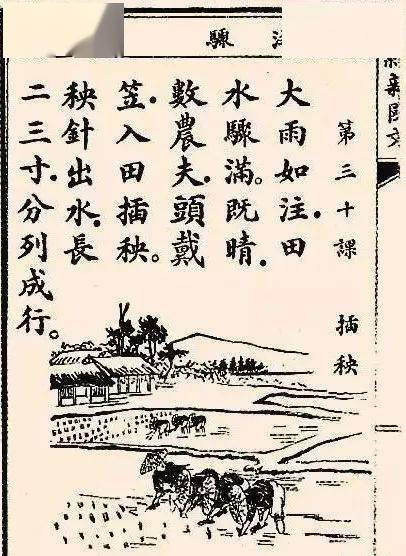 第三十課　插秧
大雨如注.田
水驟滿。既晴.
數農夫.頭戴
笠.入田插秧。
秧針出水.長
二三寸.分列成行。
驟